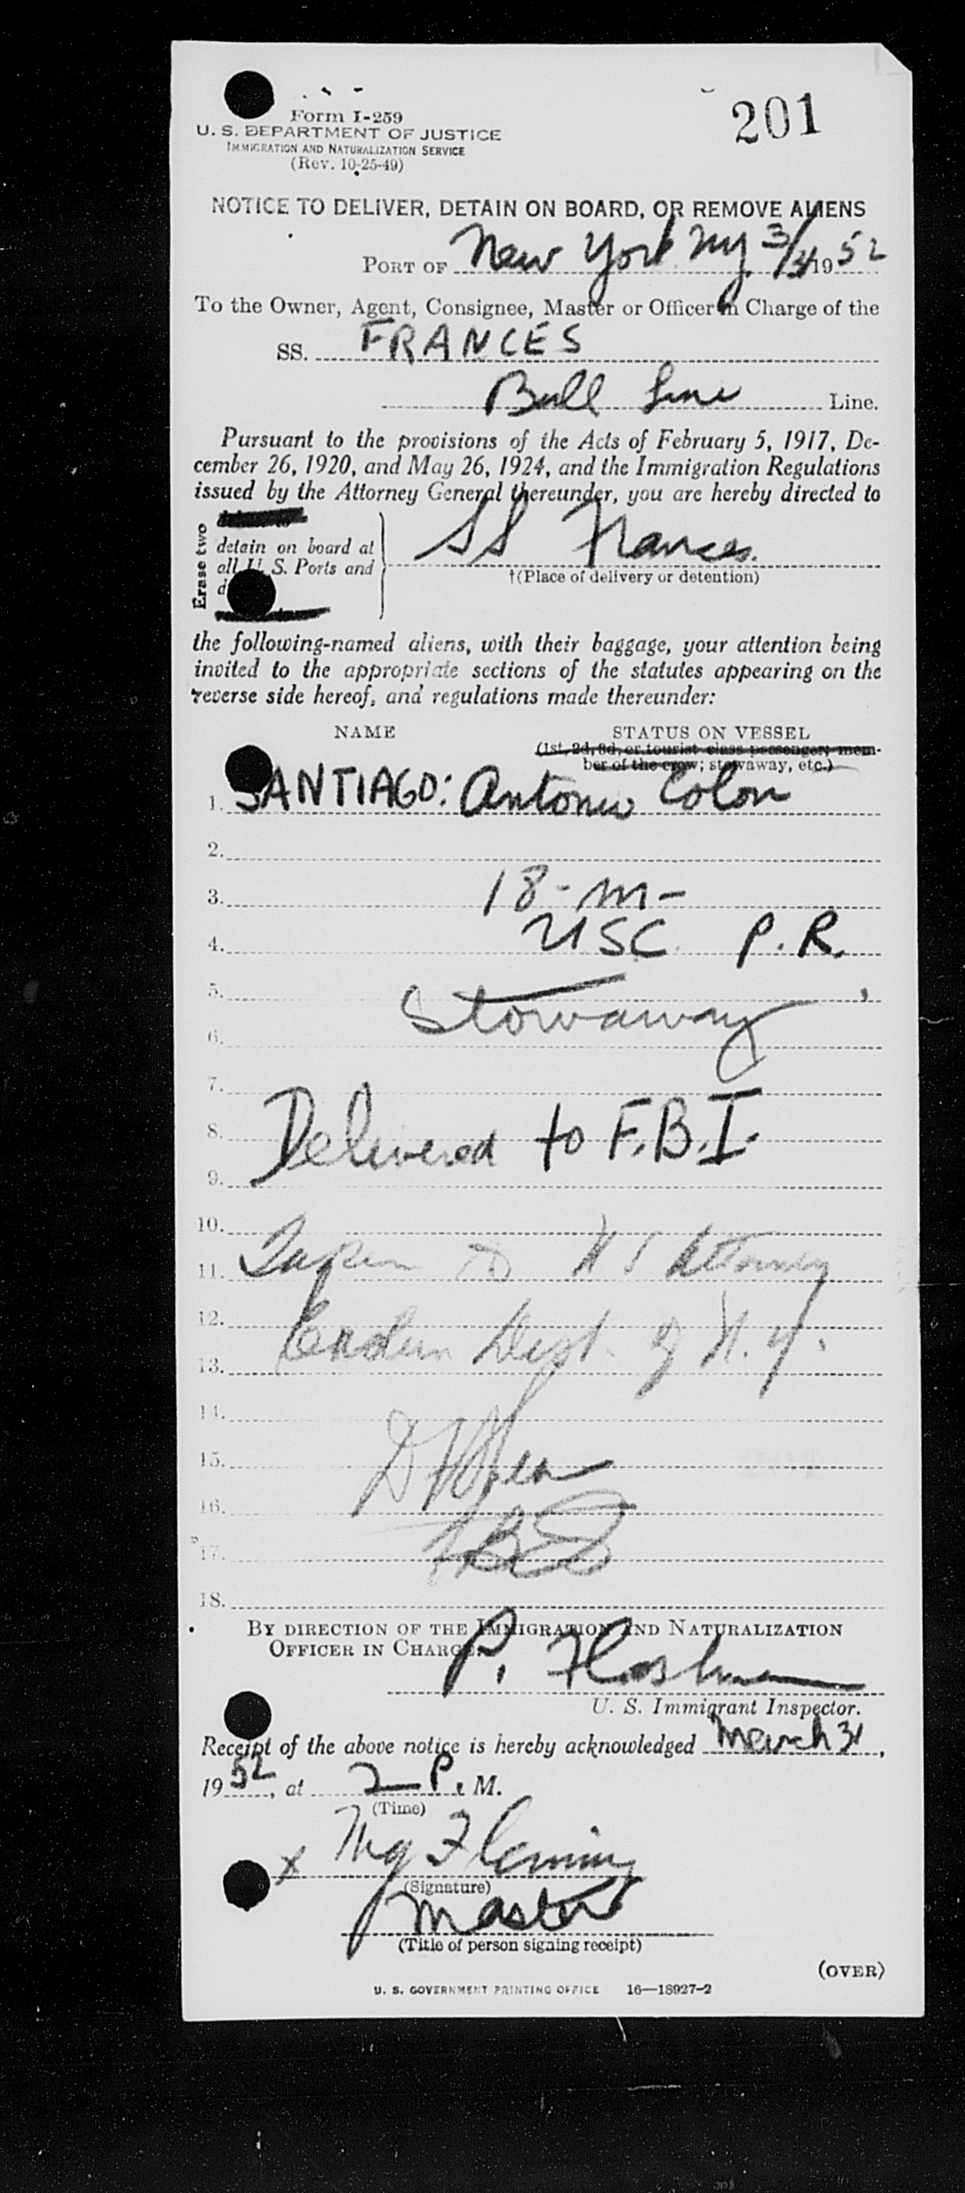 Form I-259
201
U. S. DEPARTMENT OF JUSTICE
IMMIGRATION AND NATURALIZATION SERVICE
(Rev. 10-25-49)
NOTICE TO DELIVER, DETAIN ON BOARD, OR REMOVE ALIENS
PORT OF New York NY 3/31 1952
To the Owner, Agent, Consignee, Master or Officer in Charge of the
SS. FRANCES
Bull Line Line.
Pursuant to the provisions of the Acts of February 5, 1917, De-
cember 26, 1920, and May 26, 1924, and the Immigration Regulations
issued by the Attorney General thereunder, you are hereby directed to
Erase two
detain on board at
all U. S. Ports and
SS Frances
†(Place of delivery or detention)
the following-named aliens, with their baggage, your attention being
invited to the appropriate sections of the statutes appearing on the
reverse side hereof, and regulations made thereunder:
NAME STATUS ON VESSEL
(1st, 2d, 3d, or tourist class passenger; mem-
ber of the crew; stowaway, etc.)
1. SANTIAGO: Antonio Colon
2.
3. 18-M-
4. USC P.R.
5.
Stowaway
6.
7.
8. Delivered to F.B.I.
9.
10.
11. Taken to U S Attorney
12.
13. Eastern Dist. of N.Y.
14.
15.
16.
17. FBI
18.
BY DIRECTION OF THE IMMIGRATION AND NATURALIZATION
OFFICER IN CHARGE.
P.
U. S. Immigrant Inspector.
Receipt of the above notice is hereby acknowledged March 31,
1952, at 2 P. M.
(Time)
x Fleming
(Signature)
Master
(Title of person signing receipt)
(OVER)
U. S. GOVERNMENT PRINTING OFFICE 16—18927-2